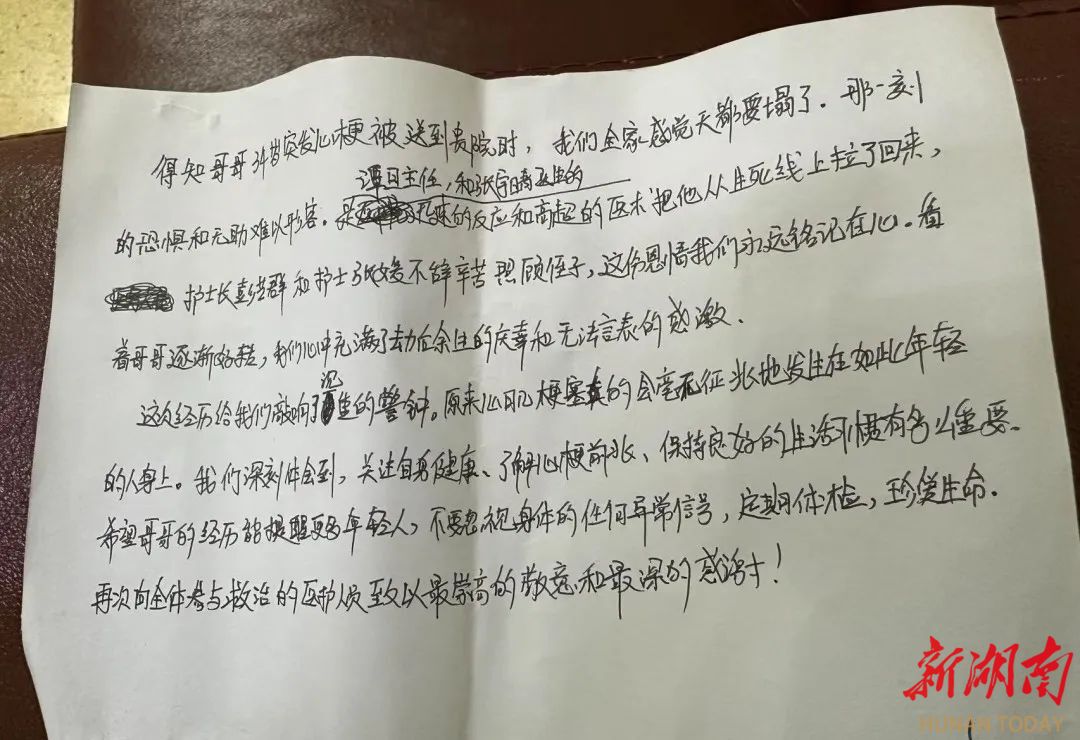 得知哥哥34岁突发心梗被送到贵院时，我们全家感觉天都要塌了．那一刻
谭日主任，和张宇晴医生的
的恐惧和无助难以形容．是迅速的反应和高超的医术把他从生死线上拉了回来，
护士长群和护士张媛不辞辛苦照顾侄子，这份恩情我们永远铭记在心．看
着哥哥逐渐好转，我们心中充满了劫后余生的庆幸和无法言表的感激．
沉
这次经历给我们敲响了重的警钟。原来心肌梗塞真的会毫无征兆地发生在如此年轻
的人身上。我们深刻体会到，关注自身健康、了解心梗前兆、保持良好的生活习惯有多么重要．
希望哥哥的经历能提醒更多年轻人，不要忽视身体的任何异常信号，定期体检，珍爱生命．
再次向全体参与救治的医护人员致以最崇高的敬意和最深的感谢！
新湖南
HUNAN TODAY